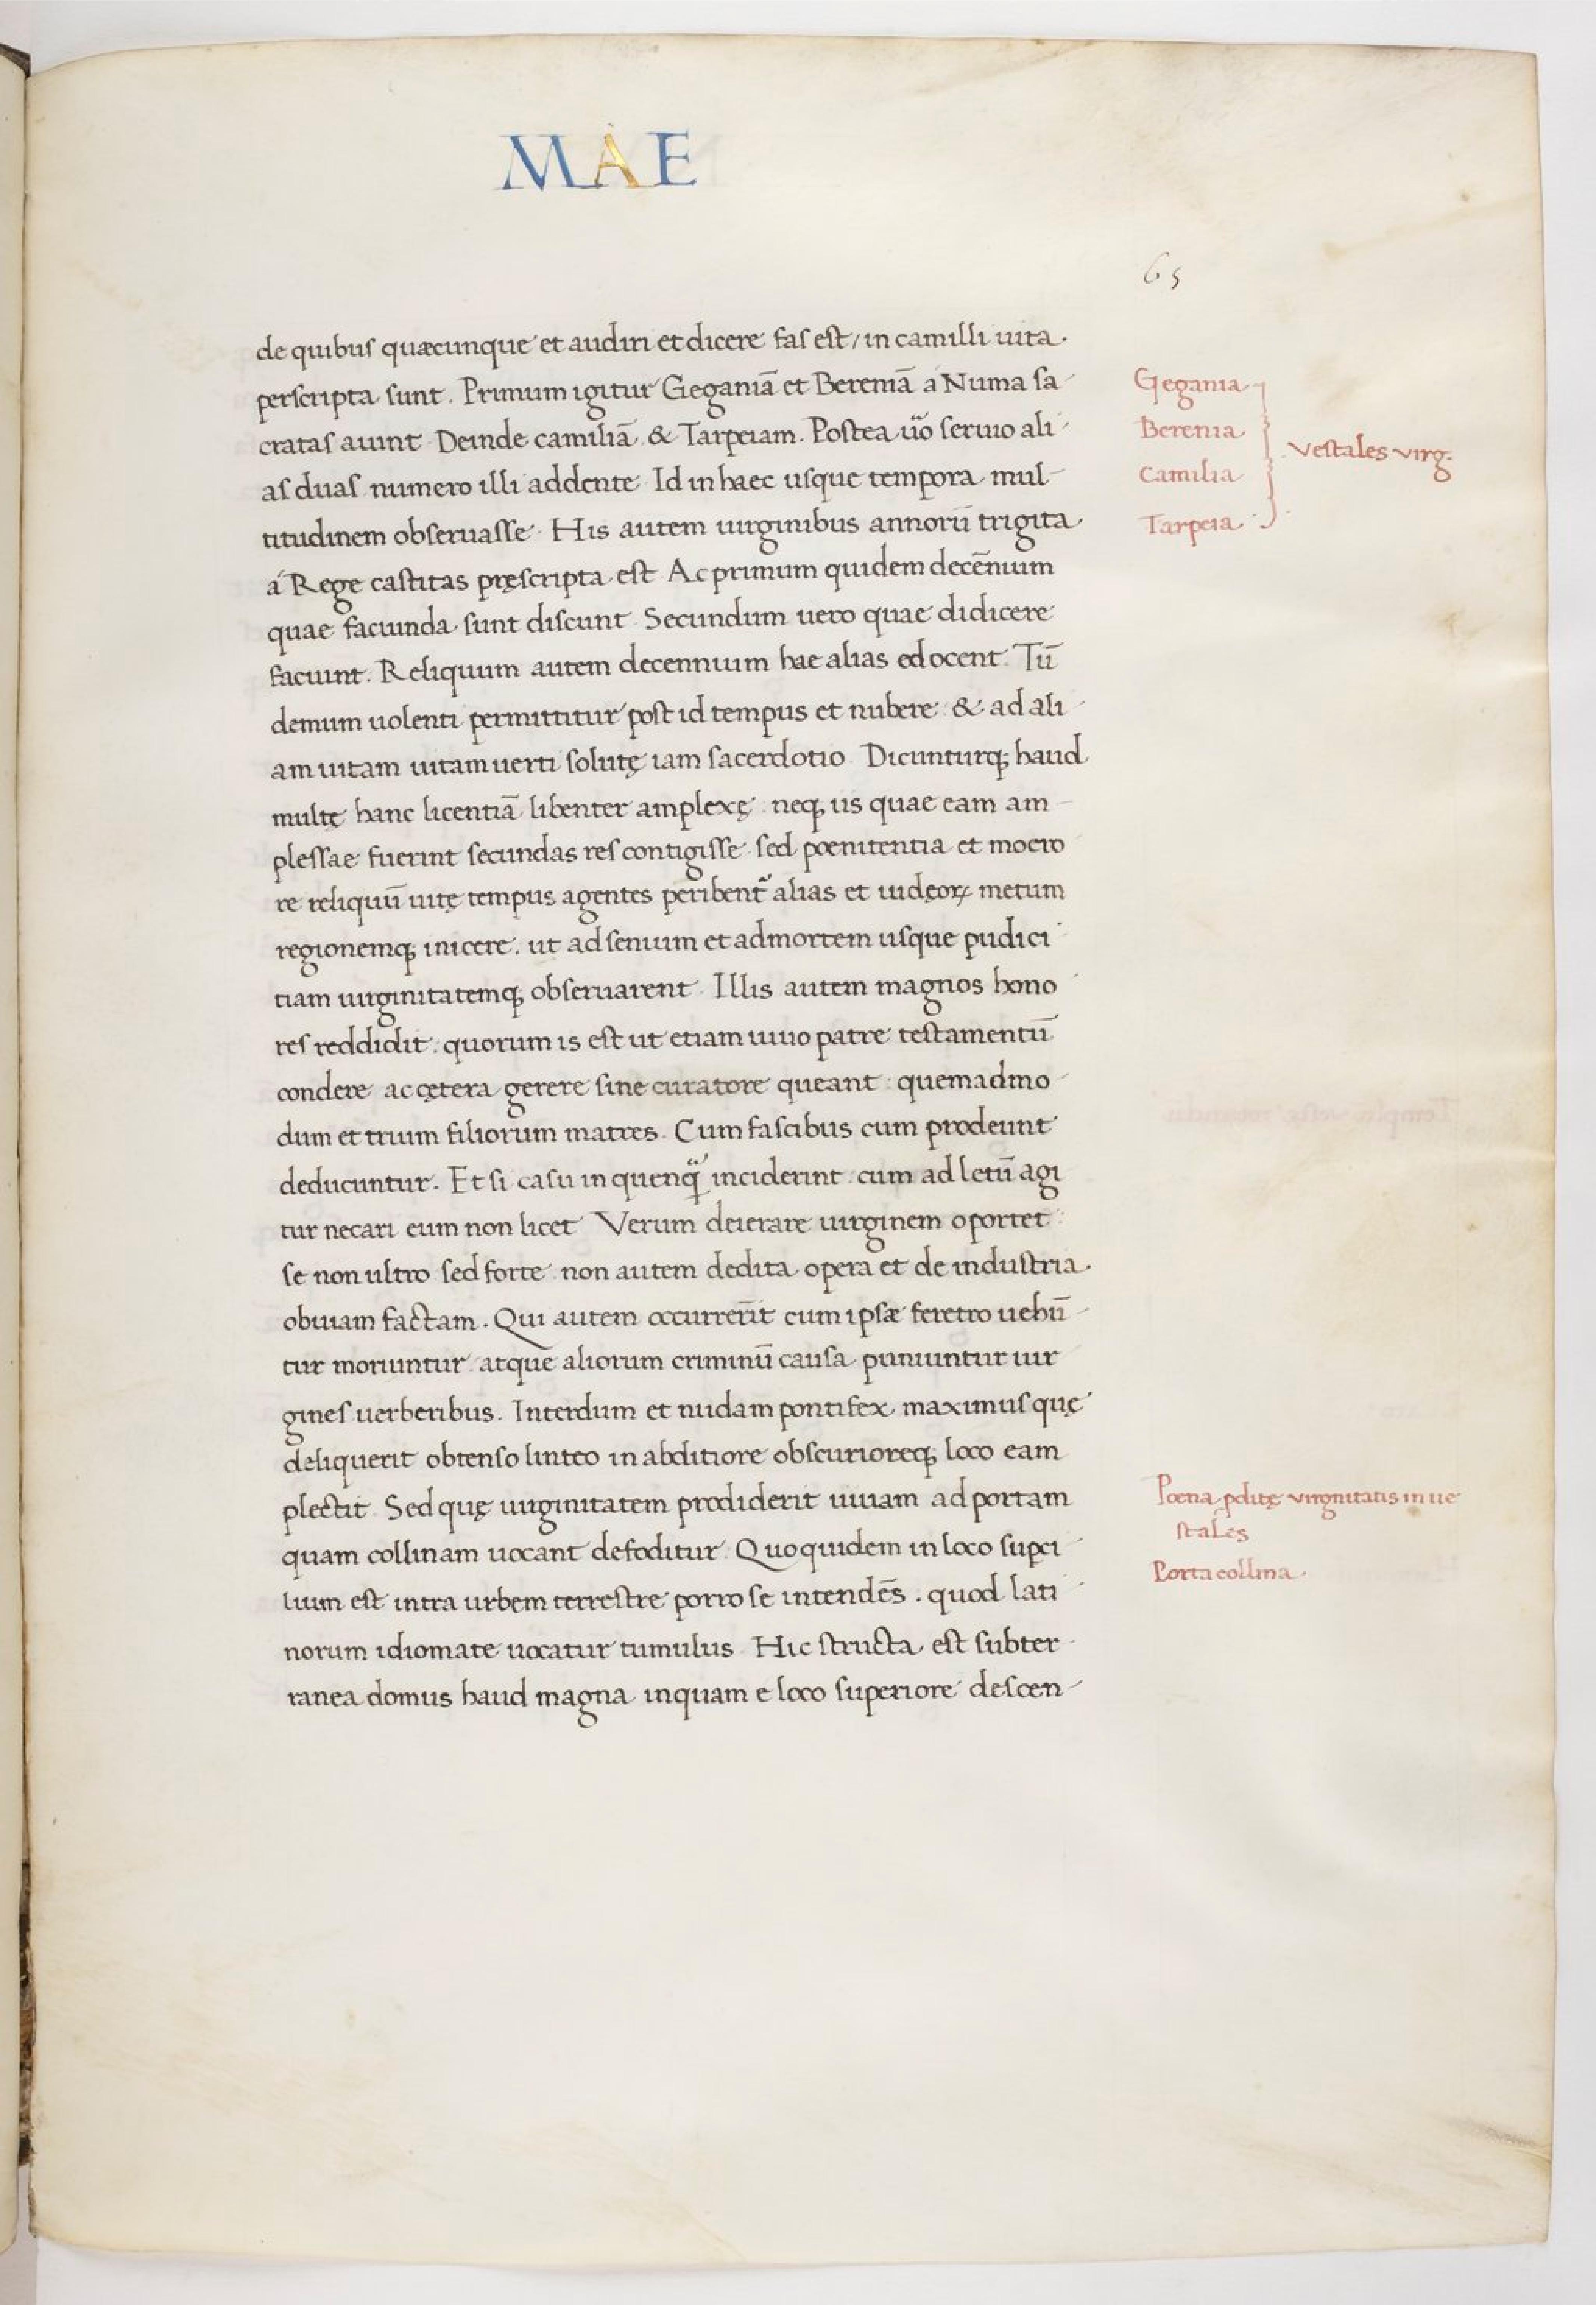 MAE
65
de quibus quæcunque et audiri et dicere fas est / in camilli uita.
perscripta sunt. Primum igitur Geganiā et Bereniā a Numa sa
cratas aiunt Deinde camiliā & Tarpeiam. Postea ūo seruio ali
as duas numero illi addente Id in haec usque tempora mul
titudinem obseruasse. His autem uirginibus annorū trigita
a Rege castitas pręscripta est Ac primum quidem decēnium
quae faciunda sunt discunt Secundum uero quae didicere
faciunt. Reliquum autem decennium hae alias edocent. Tū
demum uolenti permittitur post id tempus et nubere & ad ali
am uitam uitam uerti solutę iam sacerdotio Dicunturq; haud
multę hanc licentiā libenter amplexę. neq; iis quae eam am
plessae fuerint secundas res contigisse. sed poenitentia et moero
re reliquū uitę tempus agentes peribent̃ alias et iudęoꝝ metum
regionemq; inicere. ut ad senium et ad mortem usque pudici
tiam uirginitatemq; obseruarent. Illis autem magnos hono
res reddidit: quorum is est ut etiam uiuo patre testamentū
condere ac cętera gerere sine curatore queant: quemadmo
dum et trium filiorum matres. Cum fascibus cum prodeunt
deducuntur. Et si casu in quenq̃ inciderint: cum ad letū agi
tur necari eum non licet Verum deierare uirginem oportet:
se non ultro sed forte. non autem dedita opera et de industria.
obuiam factam. Qui autem occurrerīt cum ipsæ feretro uehū
tur moriuntur. atque aliorum criminū causa puniuntur uir
gines uerberibus. Interdum et nudam pontifex maximus quę
deliquerit obtenso linteo in abditiore obscurioreq; loco eam
plectit Sed quę uirginitatem prodiderit uiuam ad portam
quam collinam uocant defoditur. Quo quidem in loco suꝑci
lium est intra urbem terrestre porro se intendēs. quod lati
norum idiomate uocatur tumulus. Hic structa est subter
ranea domus haud magna inquam e loco superiore descen
Gegania
Berenia
Camilia
Tarpeia
Vestales virg.
Poena ꝑditę virginitatis in ue
stales
Porta collina.